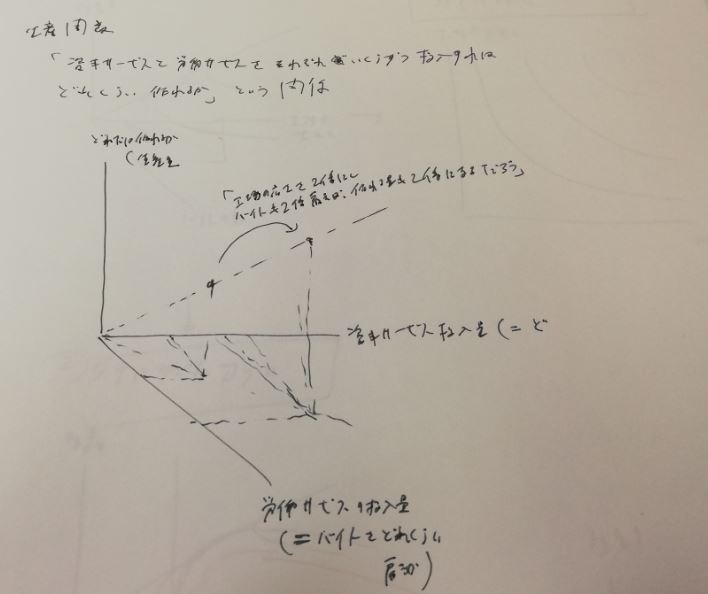 生産関数
「資本サービスと労働サービスをそれぞれいくらずつ投入すれば
どれくらい作れるか」という関係
どれだけ作れるか
(生産量
「工場の広さを2倍にし
バイトを2倍雇えば、作れる量も2倍になるだろう」
資本サービス投入量 (= ど
労働サービスの投入量
(= バイトをどれくらい
雇うか)